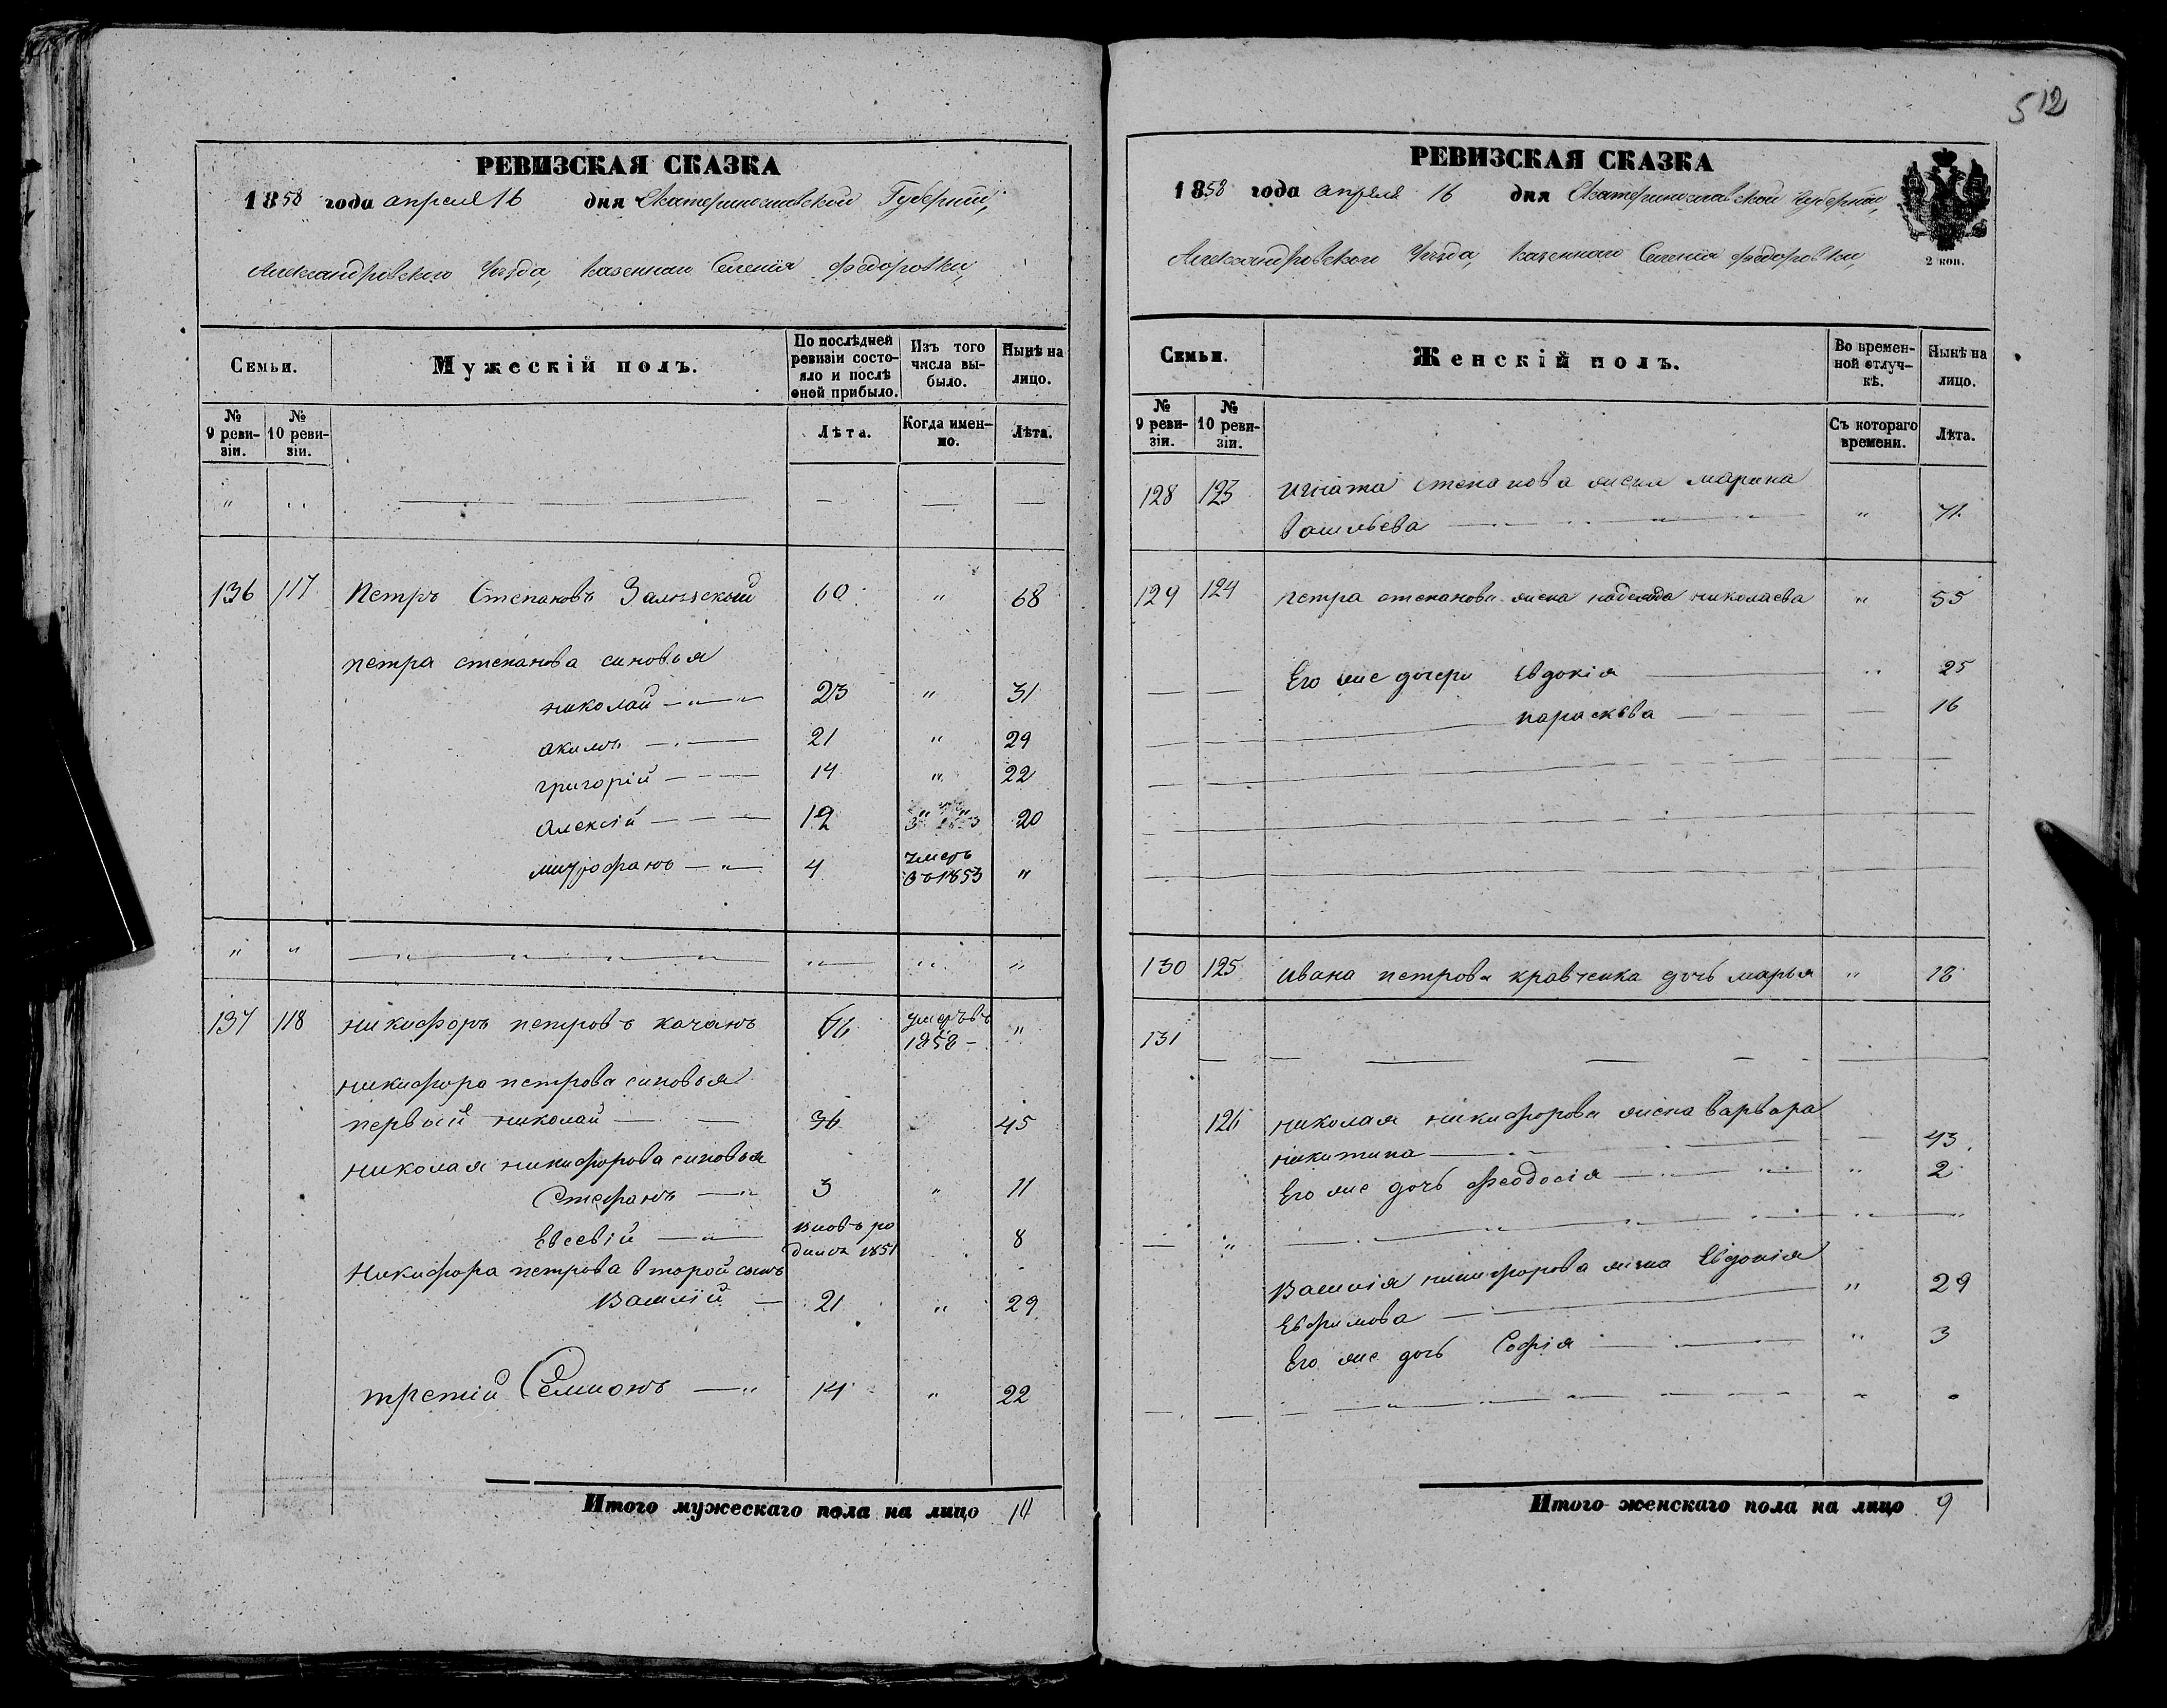 512
РЕВИЗСКАЯ СКАЗКА
1858 года апреля 16 дня Екатеринославской Губернии,
Александровского Уезда, казеннаго Селенія Федоровки,
Семьи.
Мужескій полъ.
По послѣдней ревизіи состояло и послѣ оной прибыло.
Изъ того числа выбыло.
Нынѣ на лицо.
№ 9 ревизіи.
№ 10 ревизіи.
Лѣта.
Когда именно.
Лѣта.
" " — — — —
136 117 Петръ Степановъ 60 " 68
петра степанова синовья
николай — " — 23 " 31
акимъ — 21 " 29
григорій — 14 " 22
алексій — 12 20
митрофанъ — " — 4 умеръ въ 1853 "
" " — " — " — " — " — " " "
137 118 никифоръ петровъ качанъ умеръ въ 1858 — "
никифора петрова синовья
первый николай — — 36 45
николая никифорова синовья
Стефанъ — " 3 " 11
Евсевій — " — вновъ родился 1851 8
Никифора петрова второй сынъ
Василій — 21 " 29
третій Семионъ — " 14 " 22
Итого мужескаго пола на лицо 14
РЕВИЗСКАЯ СКАЗКА
1858 года апреля 16 дня Екатеринославской Губерніи,
Александровского Уезда, казеннаго Селенія Федоровки,
2 коп.
Семьи.
Женскій полъ.
Во временной отлучкѣ.
Нынѣ на лицо.
№ 9 ревизіи.
№ 10 ревизіи.
Съ котораго времени.
Лѣта.
128 123 игната степанова жена марина
васильева — " 71
129 124 петра степанова жена надежда николаева " 55
— — Его же дочери Евдокія — " 25
— параскѣва — — 16
130 125 ивана петрова кравченка дочь марья " 18
131 — — — — — —
126 николая никифорова жена варвара
никитина — — 43
Его же дочь феодосія — " 2
— " — " — " — "
василія никифорова жена Евдокія
Ефимова — " 29
Его же дочь Софія — " 3
— — — — — — " "
Итого женскаго пола на лицо 9